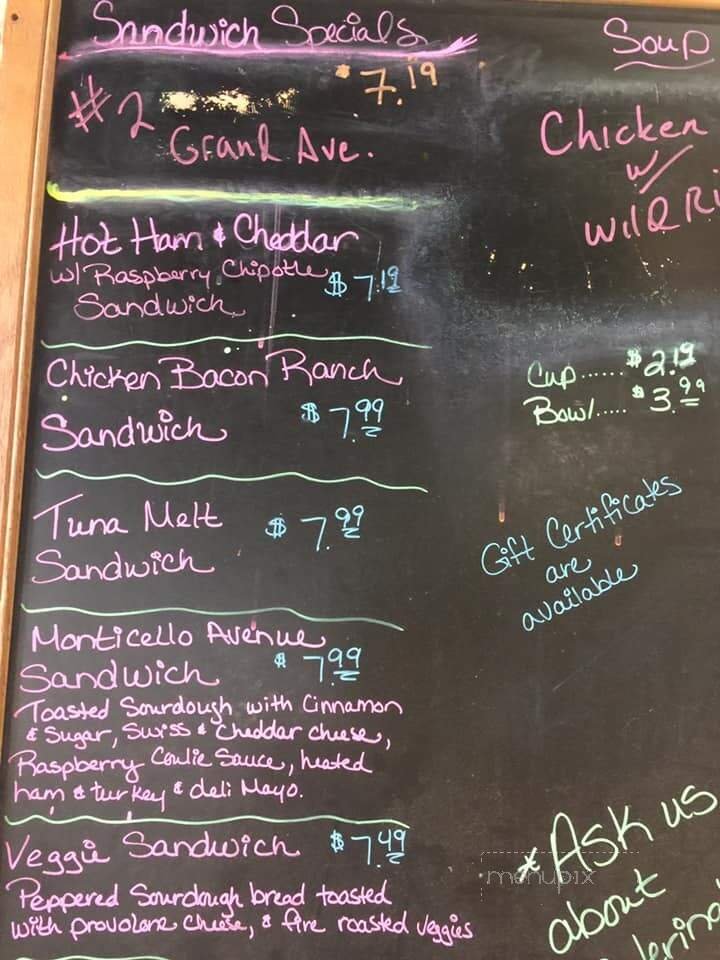 Sandwich Specials
#2 $7.19
Grand Ave.
Hot Ham & Cheddar
w/ Raspberry Chipotle $7.19
Sandwich
Chicken Bacon Ranch
Sandwich $7.99
Tuna Melt $7.99
Sandwich
Monticello Avenue
Sandwich $7.99
Toasted Sourdough with Cinnamon
& Sugar, Swiss & Cheddar cheese,
Raspberry Coulie Sauce, heated
ham & turkey & deli Mayo.
Veggie Sandwich $7.49
Peppered Sourdough bread toasted
with provolone cheese, & fire roasted veggies
Soup
Chicken
w/
Wild Ri
Cup...... $2.19
Bowl..... $3.99
Gift Certificates
are
available
*Ask us
about
menupix